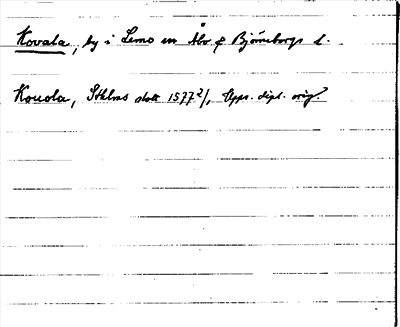 Kovala, by i Lemo sn Åbo o Björneborgs l.
Kouola, Sthlms slott 1577 2/, Upps. dipl. orig.